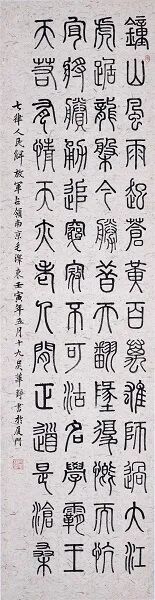 鐘山風雨起蒼黃百萬雄師過大江
虎踞龍槃今勝昔天翻地覆慨而忼
宜將賸勇追窮寇不可沽名學霸王
天若有情天亦老人間正道是滄桑
七律人民解放軍占領南京毛澤東壬寅年五月十九吳書於廈門